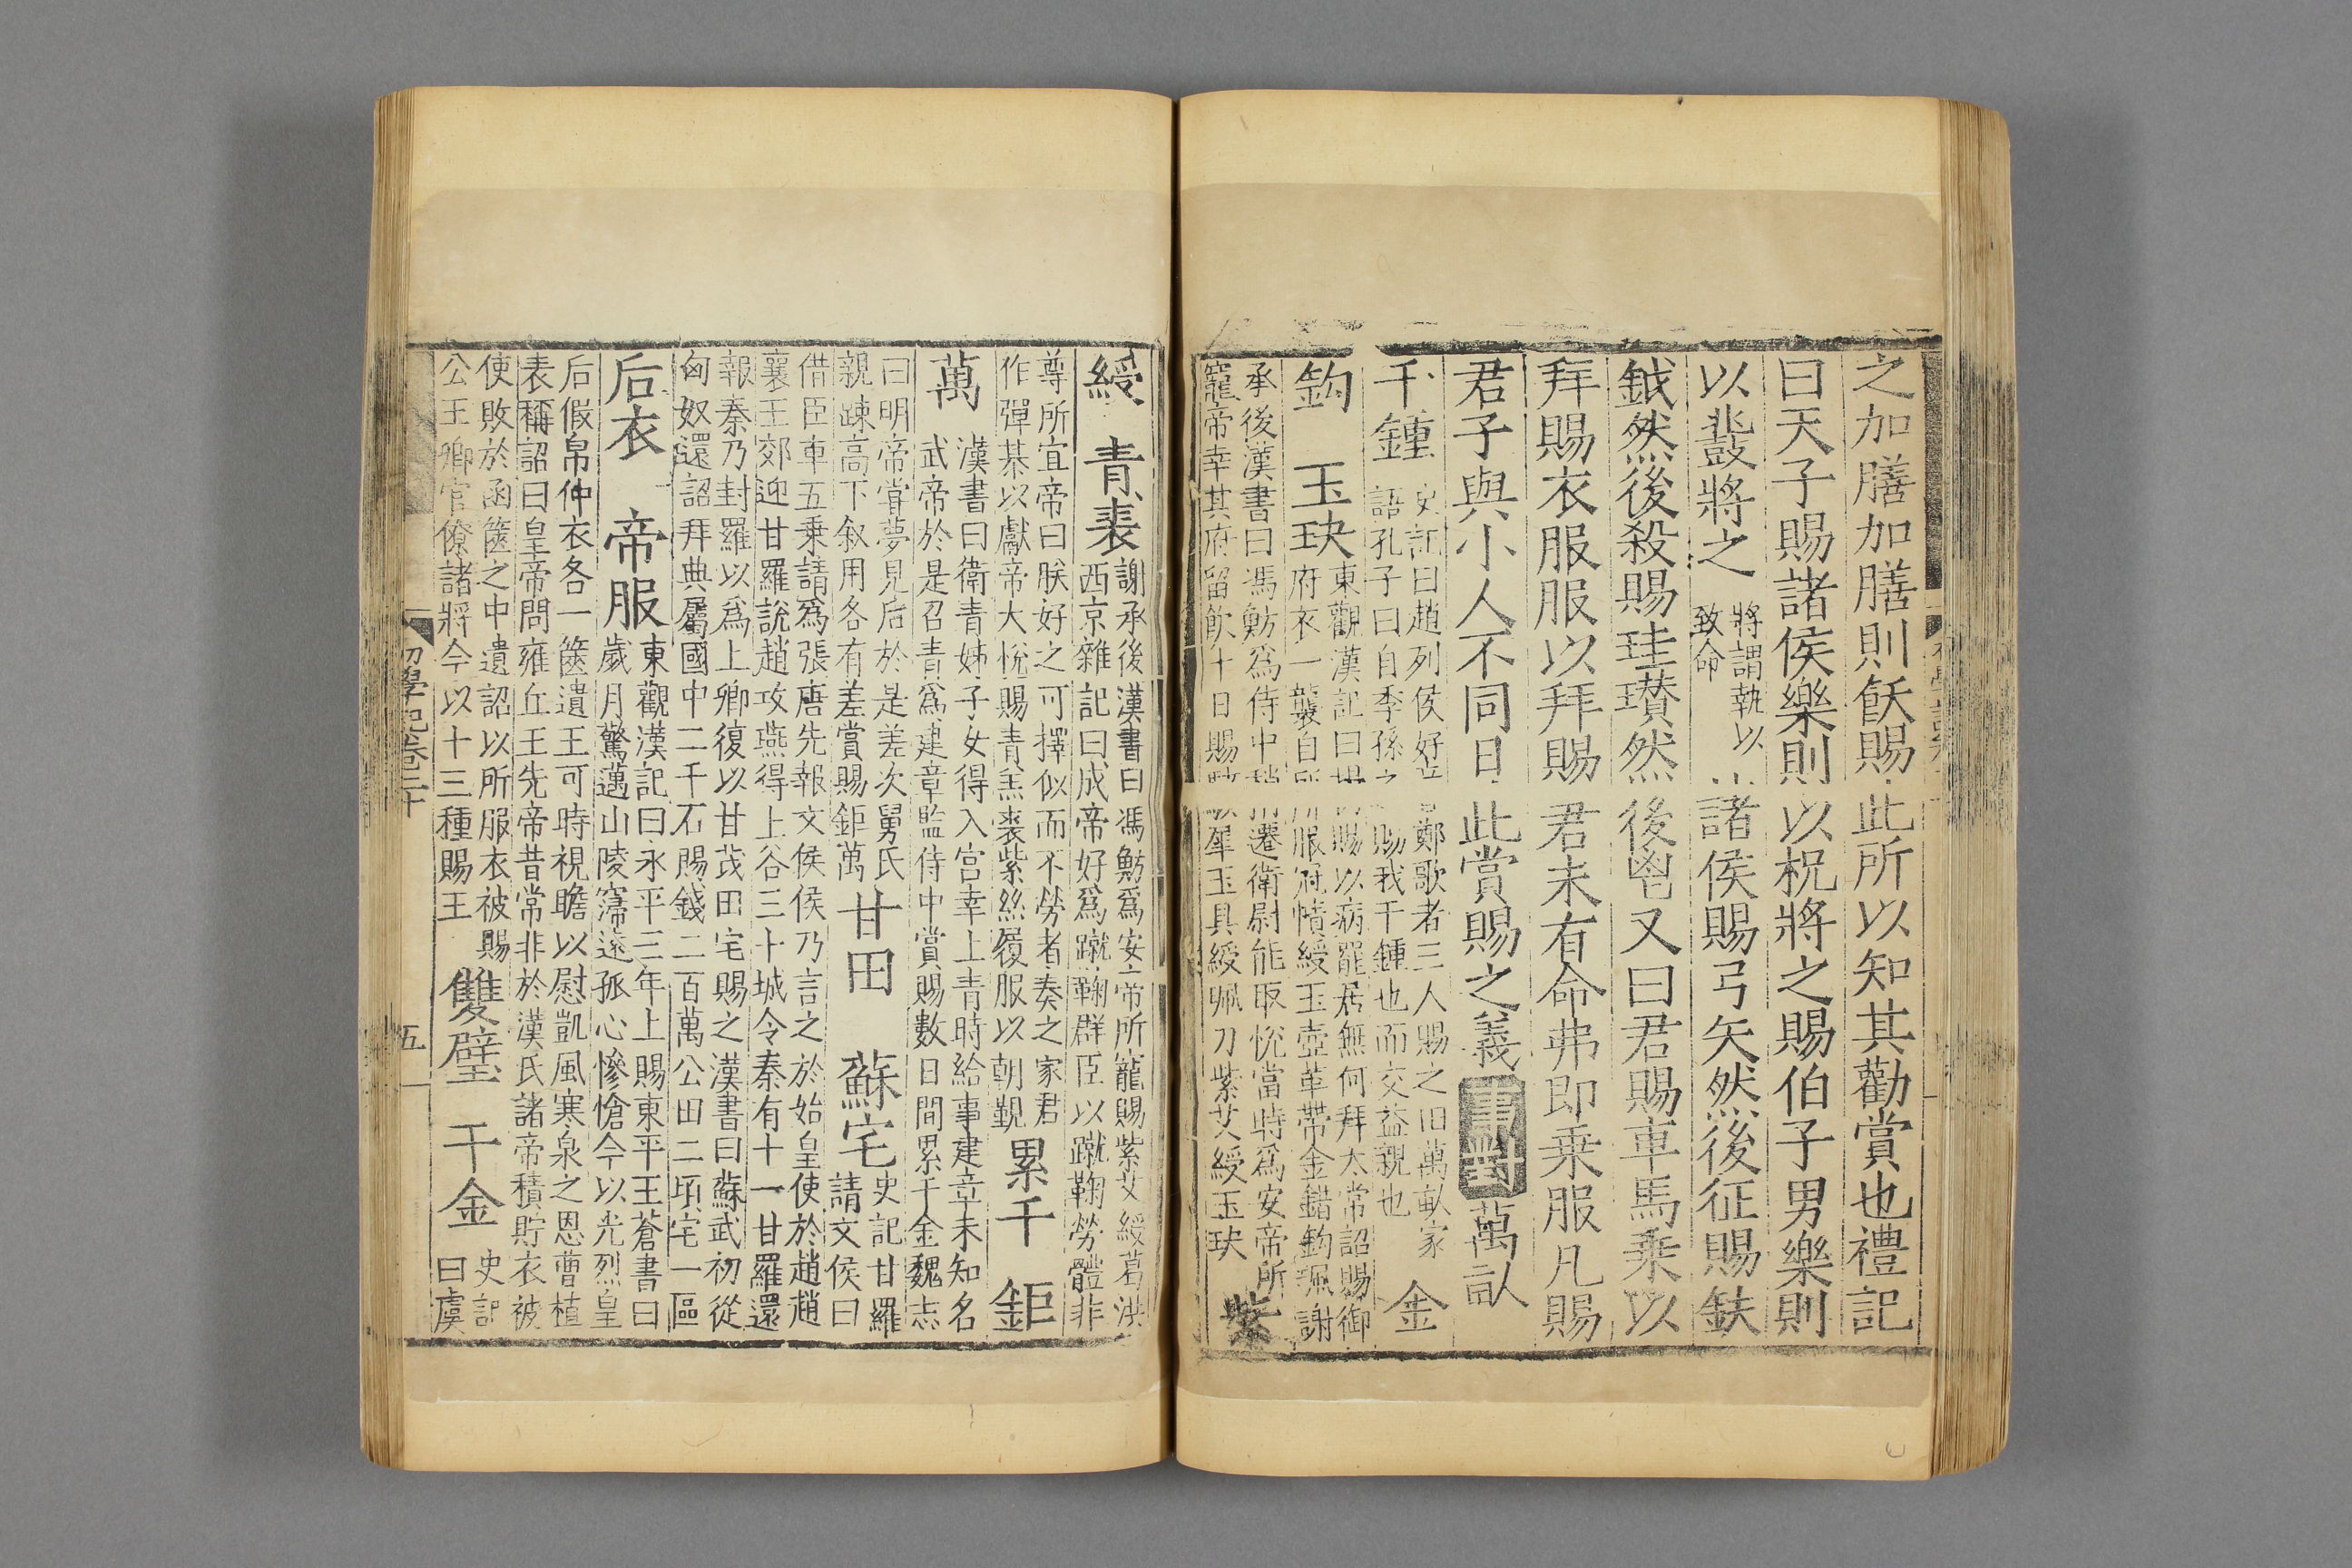 之加膳加膳則飫賜此所以知其勸賞也禮記
曰天子賜諸侯樂則以柷將之賜伯子男樂則
以鼗將之將謂執以致命諸侯賜弓矢然後征賜鈇
鉞然後殺賜珪瓚然後鬯又曰君賜車馬乘以
拜賜衣服服以拜賜君未有命弗即乘服凡賜
君子與小人不同日此賞賜之義事對萬畝
千鍾史記曰趙列侯好音鄭歌者三人賜之田萬畝家
語孔子曰自季孫之賜我千鍾也而交益親也金
鈎玉玦東觀漢記曰賜以病罷居無何拜太常詔賜御
府衣一襲自所服冠幘綬玉壺革帶金錯鈎珮謝
承後漢書曰馮魴爲侍中稍遷衛尉能取悅當時爲安帝所
寵帝幸其府留飲十日賜駮犀玉具綬珮刀紫艾綬玉玦紫
綬青裘謝承後漢書曰馮魴爲安帝所寵賜紫艾綬葛洪
西京雜記曰成帝好爲蹴鞠群臣以蹴鞠勞體非
尊所宜帝曰朕好之可擇似而不勞者奏之家君
作彈棊以獻帝大悅賜青羔裘紫絲履服以朝覲累千鉅
萬漢書曰衛青姊子女得入宮幸上青時給事建章未知名
武帝於是召青爲建章監侍中賞賜數日間累千金魏志
曰明帝甞夢見后於是差次舅氏
親踈高下叙用各有差賞賜鉅萬甘田蘇宅史記甘羅
請文侯曰
借臣車五乘請爲張唐先報文侯侯乃言之於始皇使於趙趙
襄王郊迎甘羅說趙攻燕得上谷三十城令秦有十一甘羅還
報秦乃封羅以爲上卿復以甘茂田宅賜之漢書曰蘇武初從
匈奴還詔拜典屬國中二千石賜錢二百萬公田二頃宅一區
后衣帝服東觀漢記曰永平三年上賜東平王蒼書曰
歲月驚邁山陵寖遠孤心慘愴今以光烈皇
后假帛仲衣各一篋遺王可時視瞻以慰凱風寒泉之恩曹植
表稱詔曰皇帝問雍丘王先帝昔常非於漢氏諸帝積貯衣被
使敗於函篋之中遺詔以所服衣被賜
公王卿官僚諸將今以十三種賜王雙璧千金史記
曰虞
初學記卷二十
五